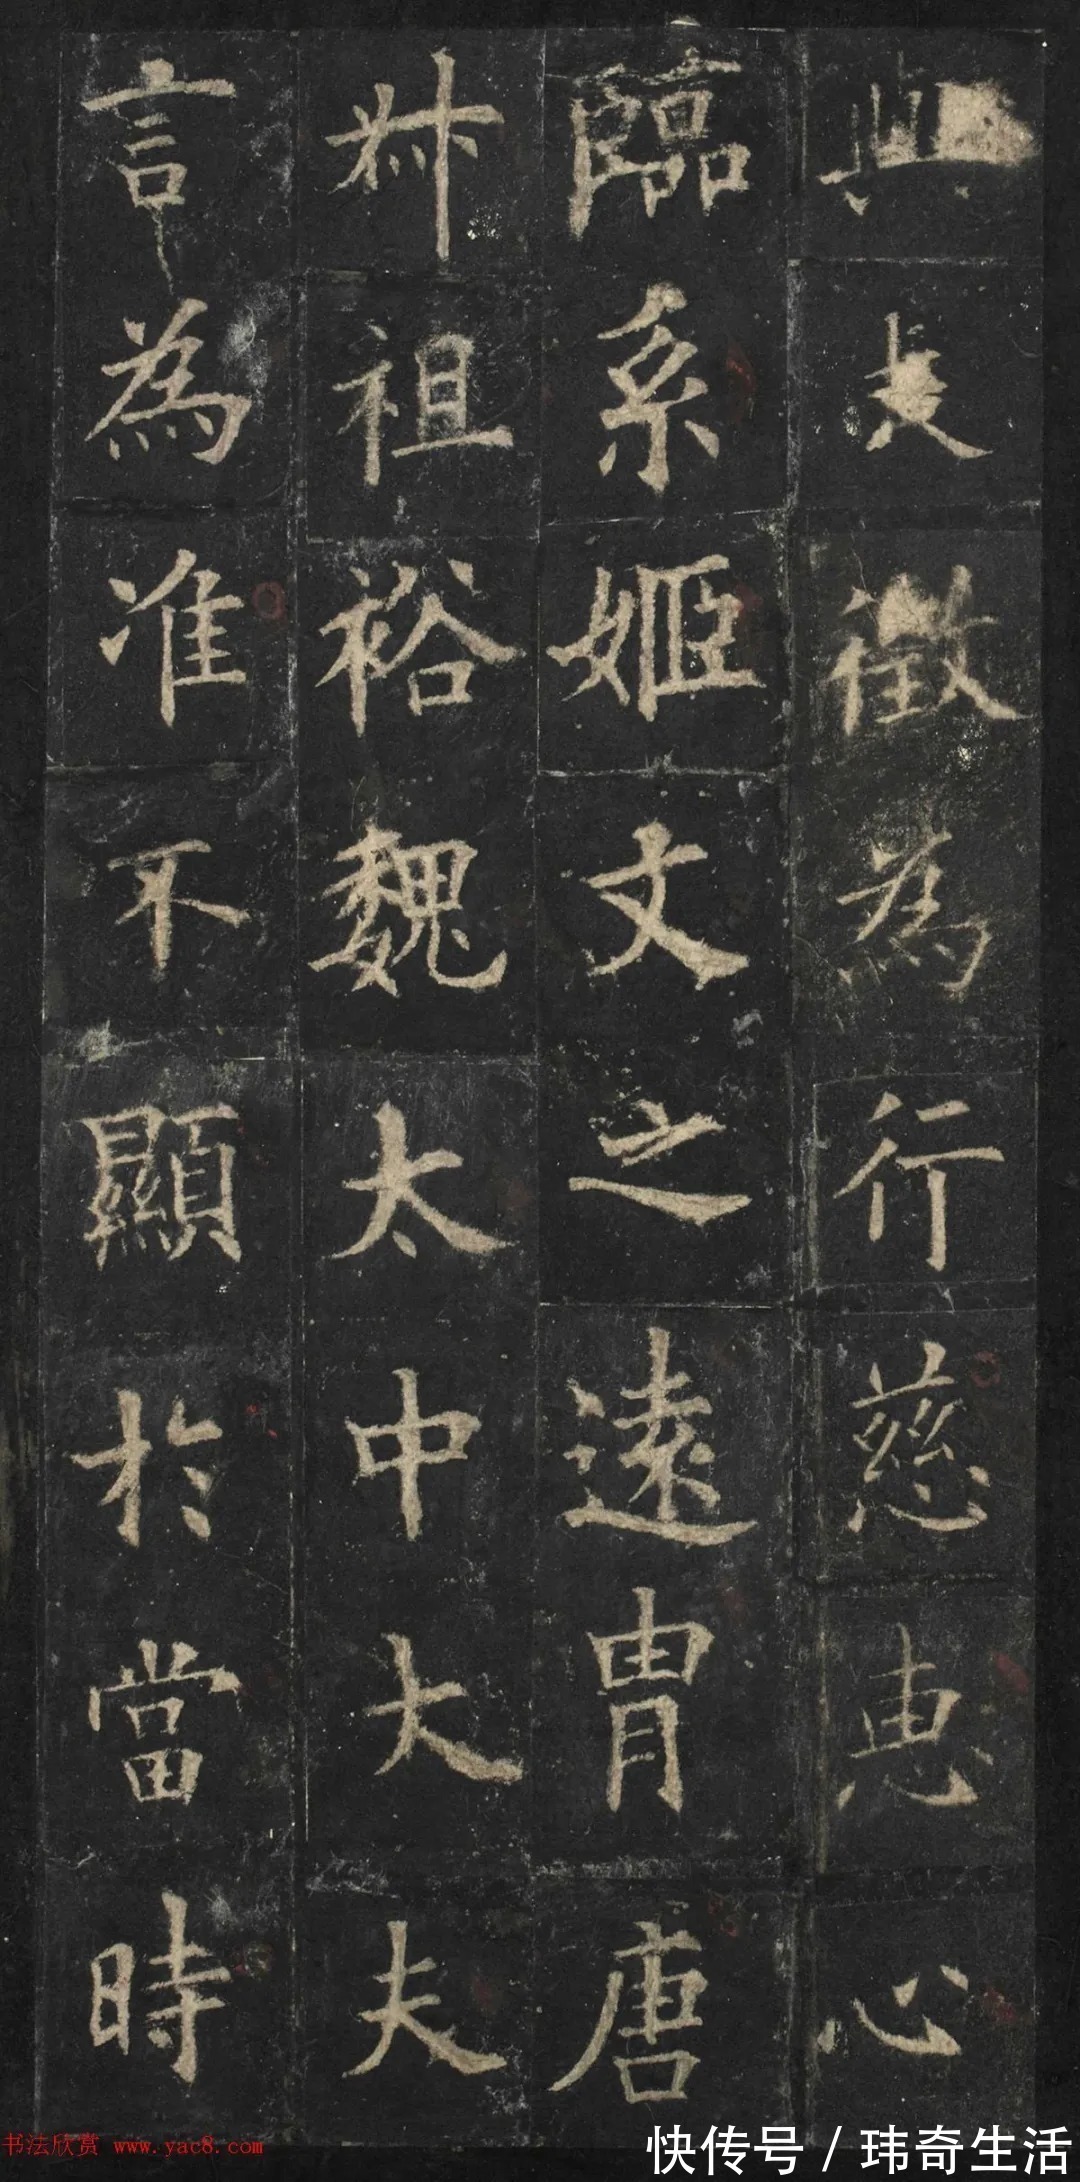 徵為行慈恵心
臨系姬文之遠胄唐
叔祖裕魏太中大夫
言為准不顯於當時
书法欣赏 www.yac8.com
快传号 / 玮奇生活